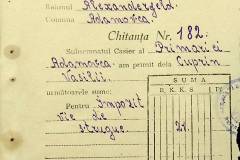 Raionul Alexanderfeld.
Comuna Adamovca
Chitanța Nr. 182.
Subsemnatul Casier al Primăriei
Adamovca am primit dela Cuprin
Vasilii.
următoarele sume:
SUMA
B. K. K. S.
Pentru Impozit
vie de
strugure.
21.